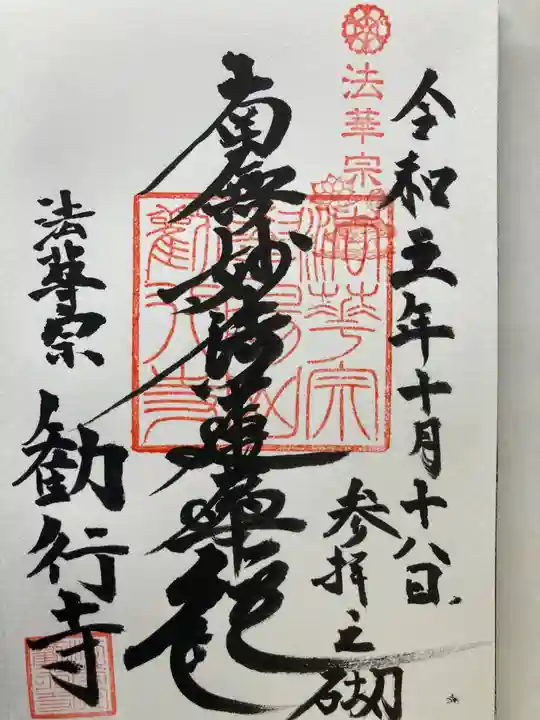 法華宗
令和五年十月十八日
参拝之砌
南無妙法蓮華経
法華宗
勧行寺
法華宗